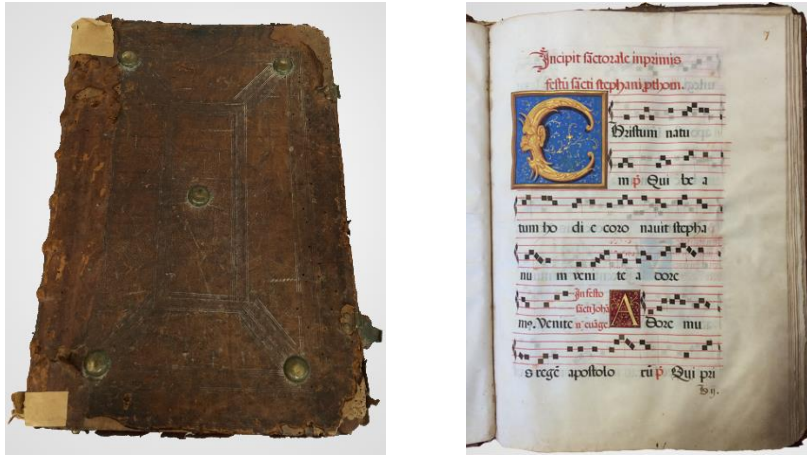 7
Incipit sāctorale inprimis
festū sācti stephani ꝓthom.
Christum natu
m p̄ Qui be a
tum ho di e coro nauit stepha
nu m veni te a dore
In festo
sācti Johā
mꝰ. Venite n̄ euāge A Dore mu
s regē apostolo rū p̄ Qui pri
b ij.